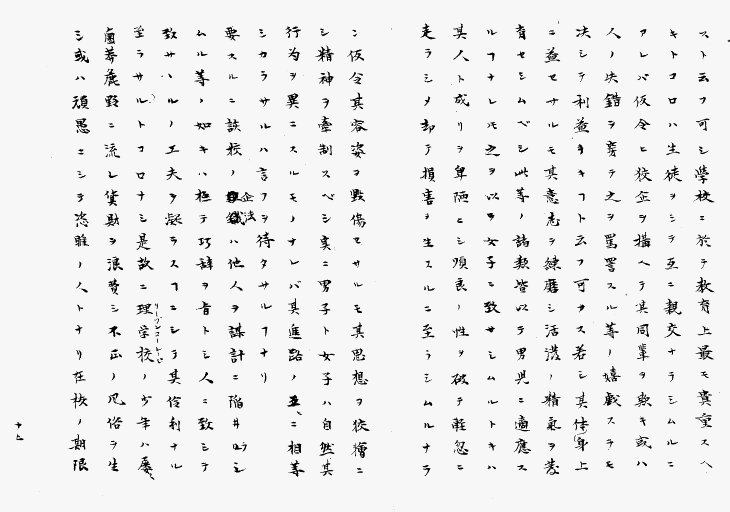 スト云フ可シ學校ニ於テ教育上最モ貴重スヘ
キトコロハ生徒ヲシテ互ニ親交ナラシムルニ
アレバ仮令ヒ狡企ヲ搆ヘテ其同輩ヲ欺キ或ハ
人ノ失錯ヲ之ヲ罵詈スル等ノ嬉戯スラモ
决シテ利益キフト云フ可カス若シ其体身上
ニ益セサルモ其意志ヲ練磨シ活溌ノ精氣ヲ養
育セシムベシ此等ノ諸類皆以テ男児ニ適應ス
ルフナレモ之ヲ以ヲ女子ニ致サシムルトキハ
其人ト成リヲ卑陋ヒシ順良ノ性ヲ破テ軽忽ニ
走ラシメ却テ損害ヲ生スルニ至ラシムルナラ
ン仮令其容姿ヲ毀傷セサルモ其思想ヲ狡獪ニ
シ精神ヲ牽制スベシ実ニ男子ト女子ハ自然其
行为ヲ異ニスルモノナレバ其進路ノ互ニ相等
シカラサルハ言フヲ待タサルフナリ
要スルニ該校ノ企法ハ他人ヲ謀計ニ陥井ラシ
ムル等ノ如キハ極テ巧辞ヲ旨トシ人ニ致シテ
致サハルノ工夫ヲ凝ラスフニシテ其伶利ナル
至ラサルトコロナシ是故ニ理学校ノ少年ハ屡
鹵莽麁野ニ流レ貨財ヲ浪費シ不正ノ風俗ヲ生
シ或ハ頑愚ニシテ恣睢ノ人トナリ在校ノ期限